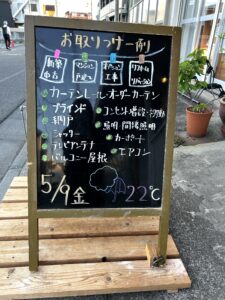 お取りつけ一例
新築 中古
マンション 戸建て
オプション 工事
リフォーム リノベーション
カーテンレール・オーダーカーテン
ブラインド
コンセント増設・移動
網戸
照明 間接照明
シャッター
カーポート
テレビアンテナ
エアコン
バルコニー屋根
5/9 金
22℃